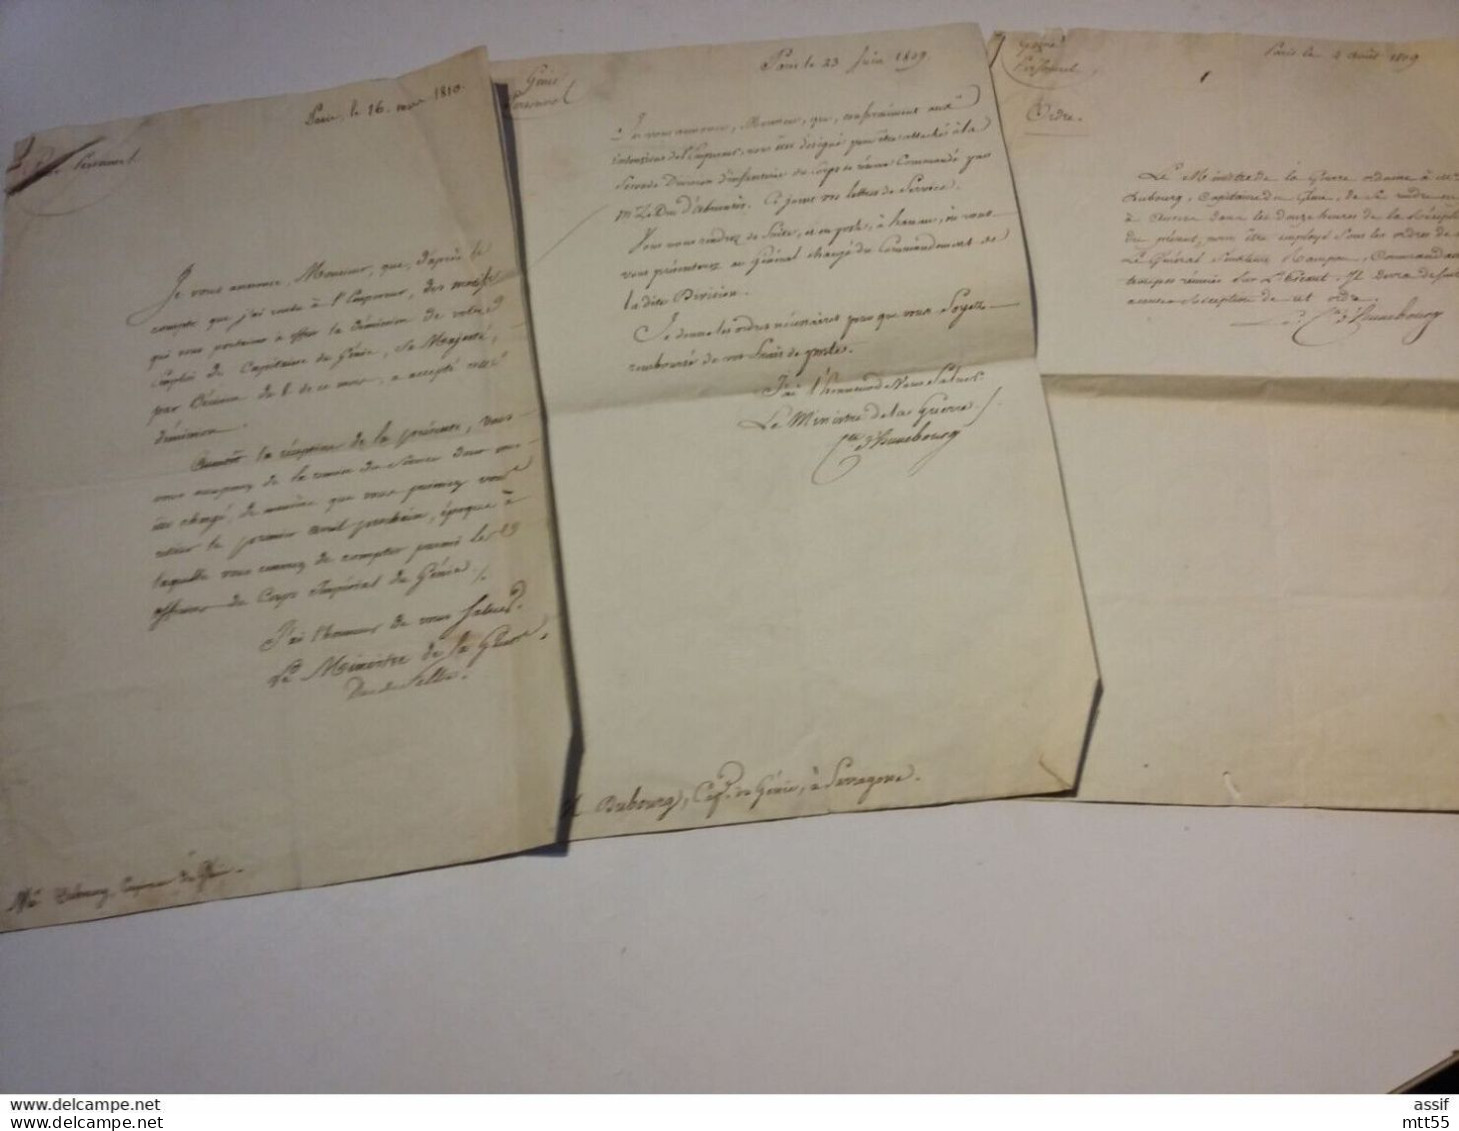 Paris, le 16. mars 1810.
Personnel
Je vous annonce, Monsieur, que, d'après le
compte que j'ai rendu à l'Empereur, des motifs
qui vous portaient à offrir la démission de votre
Emploi de Capitaine du Génie, Sa Majesté,
par Décision du 6 de ce mois, a accepté cette
démission.
la réception de la présente, vous
vous occuperez de la remise du Service dont vous
êtes chargé, de manière que vous puissiez vous
retirer le premier avril prochain, époque à
laquelle vous cesserez de compter parmi les
officiers du Corps Impérial du Génie.
J'ai l'honneur de vous saluer.
Le Ministre de la Guerre.
Duc de Feltre.
Mr. Dubourg, Capitaine du Génie.
Paris le 23 Juin 1809.
Génie
Personnel
Je vous annonce, Monsieur, que, conformément aux
intentions de l'Empereur, vous êtes désigné pour être attaché à la
Seconde Division d'infanterie du Corps de réserve Commandé par
Mr. Le Duc d'Abrantès. Ci joint vos lettres de Service.
Vous vous rendrez de suite, et en poste, à hanau, où vous
vous présenterez au Général chargé du Commandement de
la dite Division.
Je donne les ordres nécessaires pour que vous Soyez
remboursé de vos frais de poste.
J'ai l'honneur de Vous Saluer.
Le Ministre de la Guerre
Cte d'Hunebourg
M Dubourg, Cape. du Génie, à Sarragosse.
Paris le 4 août 1809
Génie
Personnel
Ordre.
Le Ministre de la Guerre ordonne à Mr.
Dubourg, Capitaine du Génie, de se rendre
à Anvers dans les douze heures de la réception
du présent, pour être employé Sous les ordres de
Le Général Sénateur Rampon, Commandant
troupes réunies Sur L'Escaut. Il devra de suite
accuser réception de cet ordre.
Cte d'Hunebourg
delcampe.net
delcampe.net
assif
mtt55